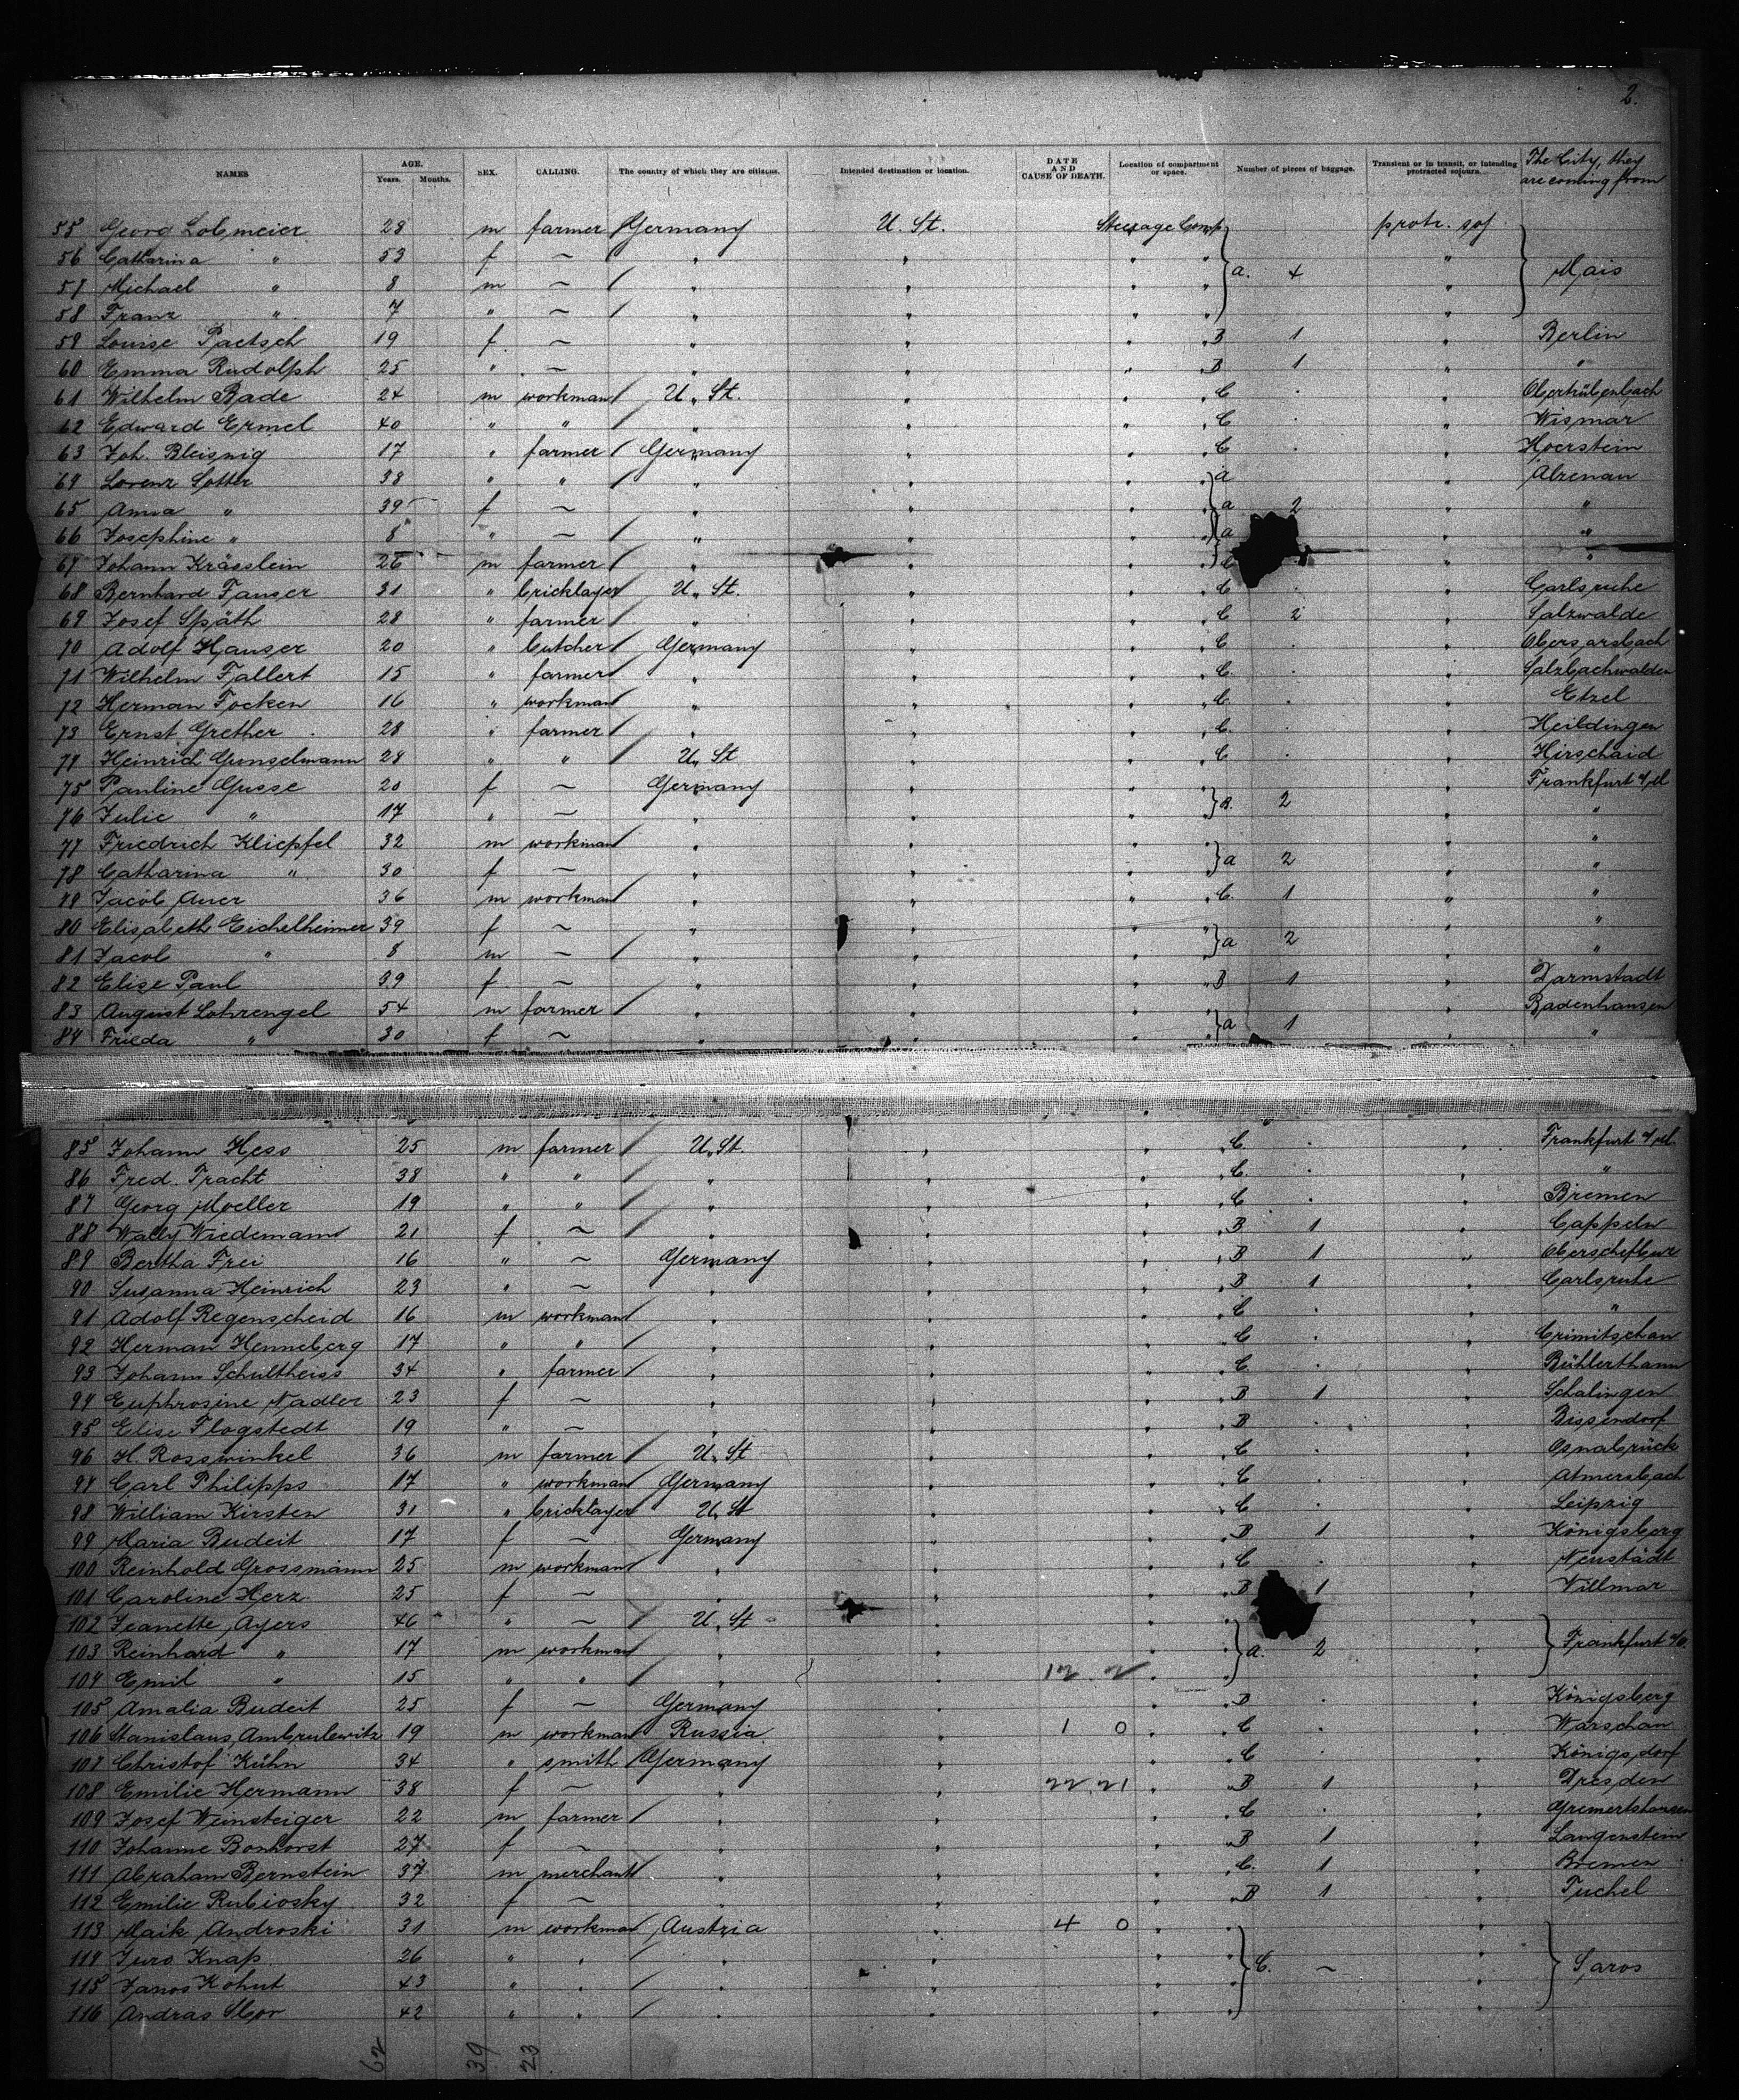 2.
NAMES AGE. Years. Months. SEX. CALLING. The country of which they are citizens. Intended destination or location. DATE AND CAUSE OF DEATH. Location of compartment or space. Number of pieces of baggage. Transient or in transit, or intending protracted sojourn. The City, they are coming from
55 Georg Lobmeier 28 m farmer Germany U. St. Steerage Comp protr. soj.
56 Catharina " 53 f ~ " " " " } a. 4 " } Mais
57 Michael " 8 m ~ " " " " "
58 Franz " 7 " ~ " " " " "
59 Louise Paetsch 19 f. ~ " " " B 1 " Berlin
60 Emma Rudolph 25 " ~ " " " B 1 " "
61 Wilhelm Bade 24 m workman U. St. " " C " Obertrübenbach
62 Edward Ermel 40 " " " " " C " Wismar
63 Joh. Bleisnig 17 " farmer Germany " " C " Hoerstein
64 Lorenz Sotter 38 " " " " " a " Alzenau
65 Anna " 39 f ~ " " " a 2 " "
66 Josephine " 8 " ~ " " " a " "
67 Johann Krässlein 26 m farmer " " " C " "
68 Bernhard Fauser 31 " bricklayer U. St. " " C " Carlsruhe
69 Josef Späth 28 " farmer " " " C 2 " Salzwalde
70 Adolf Hauser 20 " butcher Germany " " C " Obersarsbach
71 Wilhelm Fallert 15 " farmer " " " C. " Salzbachwalden
72 Herman Focken 16 " workman " " " C. " Etzel
73 Ernst Grether 28 " farmer " " " C. " Heildingen
74 Heinrich Gunselmann 28 " " U. St " " C " Hirschaid
75 Pauline Gusse 20 f ~ Germany " " " Frankfurt a/M
76 Julie " 17 " ~ " " " } B. 2 " "
77 Friedrich Kliepfel 32 m workman " " " " "
78 Catharina " 30 f ~ " " " } a 2 " "
79 Jacob Auer 36 m workman " " " C. 1 " "
80 Elisabeth Eichelheimer 39 f ~ " " " " "
81 Jacob " 8 m ~ " " " } a 2 " "
82 Elise Paul 39 f ~ " " " B 1 " Darmstadt
83 August Lohrengel 54 m farmer " " " " Badenhausen
84 Frieda " 30 f ~ " " " } a 1 " "
85 Johann Hess 25 m farmer U. St. " " C. " Frankfurt a/M
86 Fred. Tracht 38 " " " " " C. " "
87 Georg Moeller 19 " " " " " C " Bremen
88 Wally Wiedemann 21 f ~ " " " B 1 " Cappeln
89 Bertha Frei 16 " ~ Germany " " B 1 "
90 Susanna Heinrich 23 " ~ " " " B 1 " Carlsruhe
91 Adolf Regenscheid 16 m workman " " " C " "
92 Herman Henneberg 17 " " " " " C " Crimitschau
93 Johann Schultheiss 34 " farmer " " " C " Bühlerthann
94 Euphrosine Nadler 23 f ~ " " " B 1 " Schalingen
95 Elise Flogstedt 19 " ~ " " " B " Bissendorf
96 H. Rosswinkel 36 m farmer U. St " " C " Osnabrück
97 Carl Philipps 17 " workman Germany " " C " Atmersbach
98 William Kirsten 31 " bricklayer U. St " " C " Leipzig
99 Maria Budeit 17 f ~ Germany " " B 1 " Königsberg
100 Reinhold Grossmann 25 m workman " " " C " Neustadt
101 Caroline Herz 25 f ~ " " " B 1 " Villmar
102 Jeanette Ayers 46 " ~ U. St " " "
103 Reinhard " 17 m workman " " " } a. 2 " } Frankfurt a/O.
104 Emil " 15 " " " " 12 2 " "
105 Amalia Budeit 25 f ~ Germany " " B " Königsberg
106 Stanislaus Ambrulewitz 19 m workman Russia " 1 0 " C " Warschau
107 Christof Kühn 34 " smith Germany " " C " Königsdorf
108 Emilie Hermann 38 f ~ " " 22 21 " B 1 " Dresden
109 Josef Weinsteiger 22 m farmer " " " C " Gremertshausen
110 Johanne Bonhorst 27 f ~ " " " B 1 " Langenstein
111 Abraham Bernstein 37 m merchant " " " C. 1 " Bremen
112 Emilie Rubiosky 32 f ~ " " " B 1 " Tuchel
113 Maik Androski 31 m workman Austria " 4 0 " "
114 Juro Knap 26 " " " " " "
115 Janos Kohut 43 " " " " " } C. ~ " } Saros
116 Andras Sbor 42 " " " " " "
62 39 23